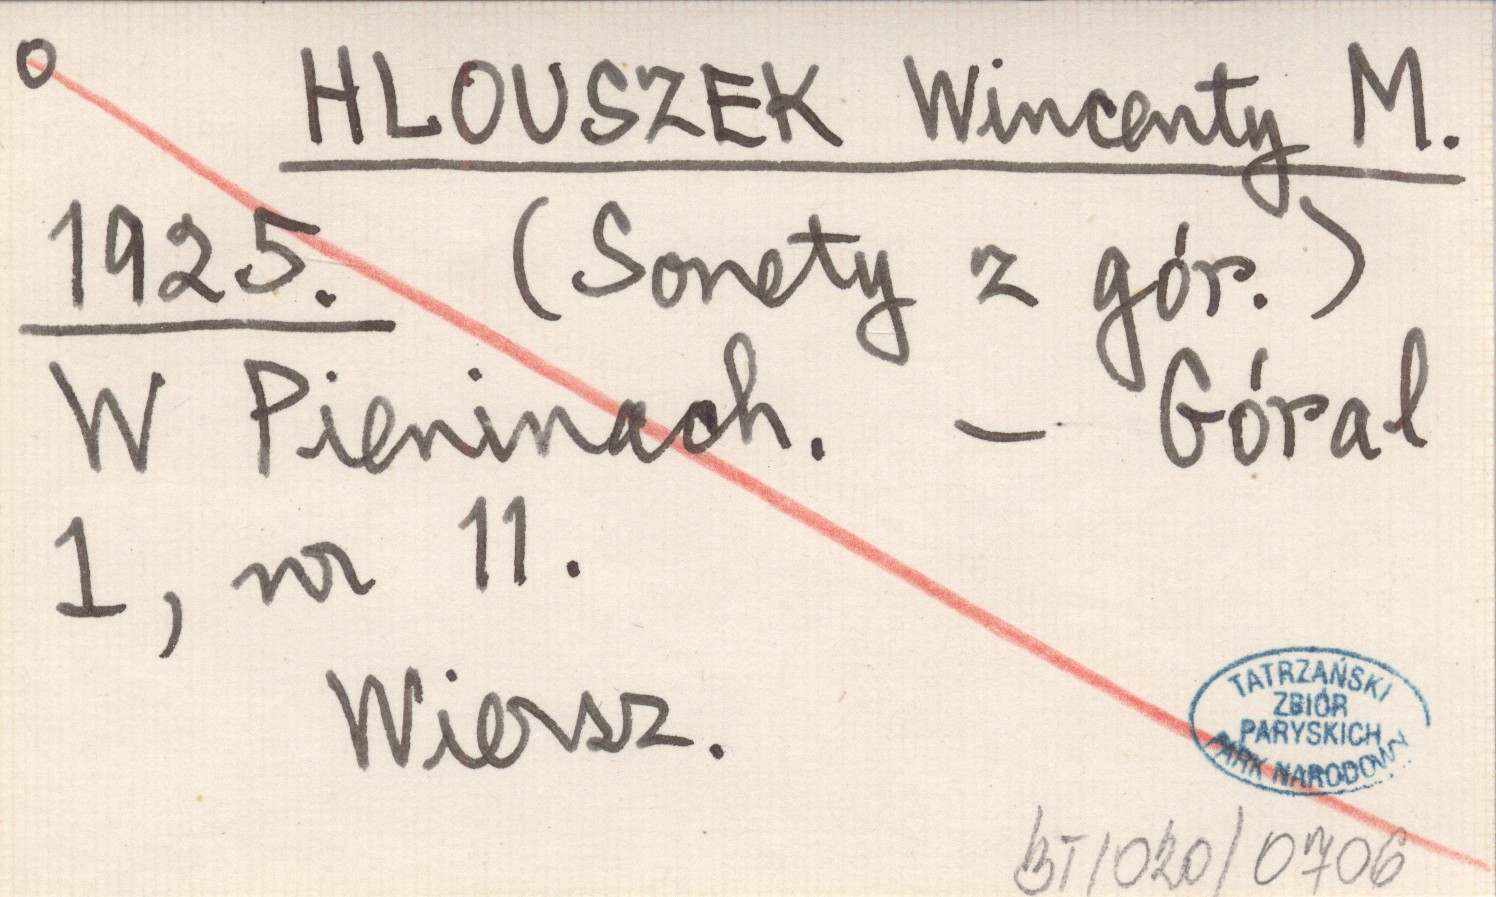 o HLOUSZEK Wincenty M.
1925. (Sonety z gór.)
W Pieninach. – Góral
1, nr 11.
Wiersz.
TATRZAŃSKI
ZBIÓR
PARYSKICH
PARK NARODOWY
BT/020/0706